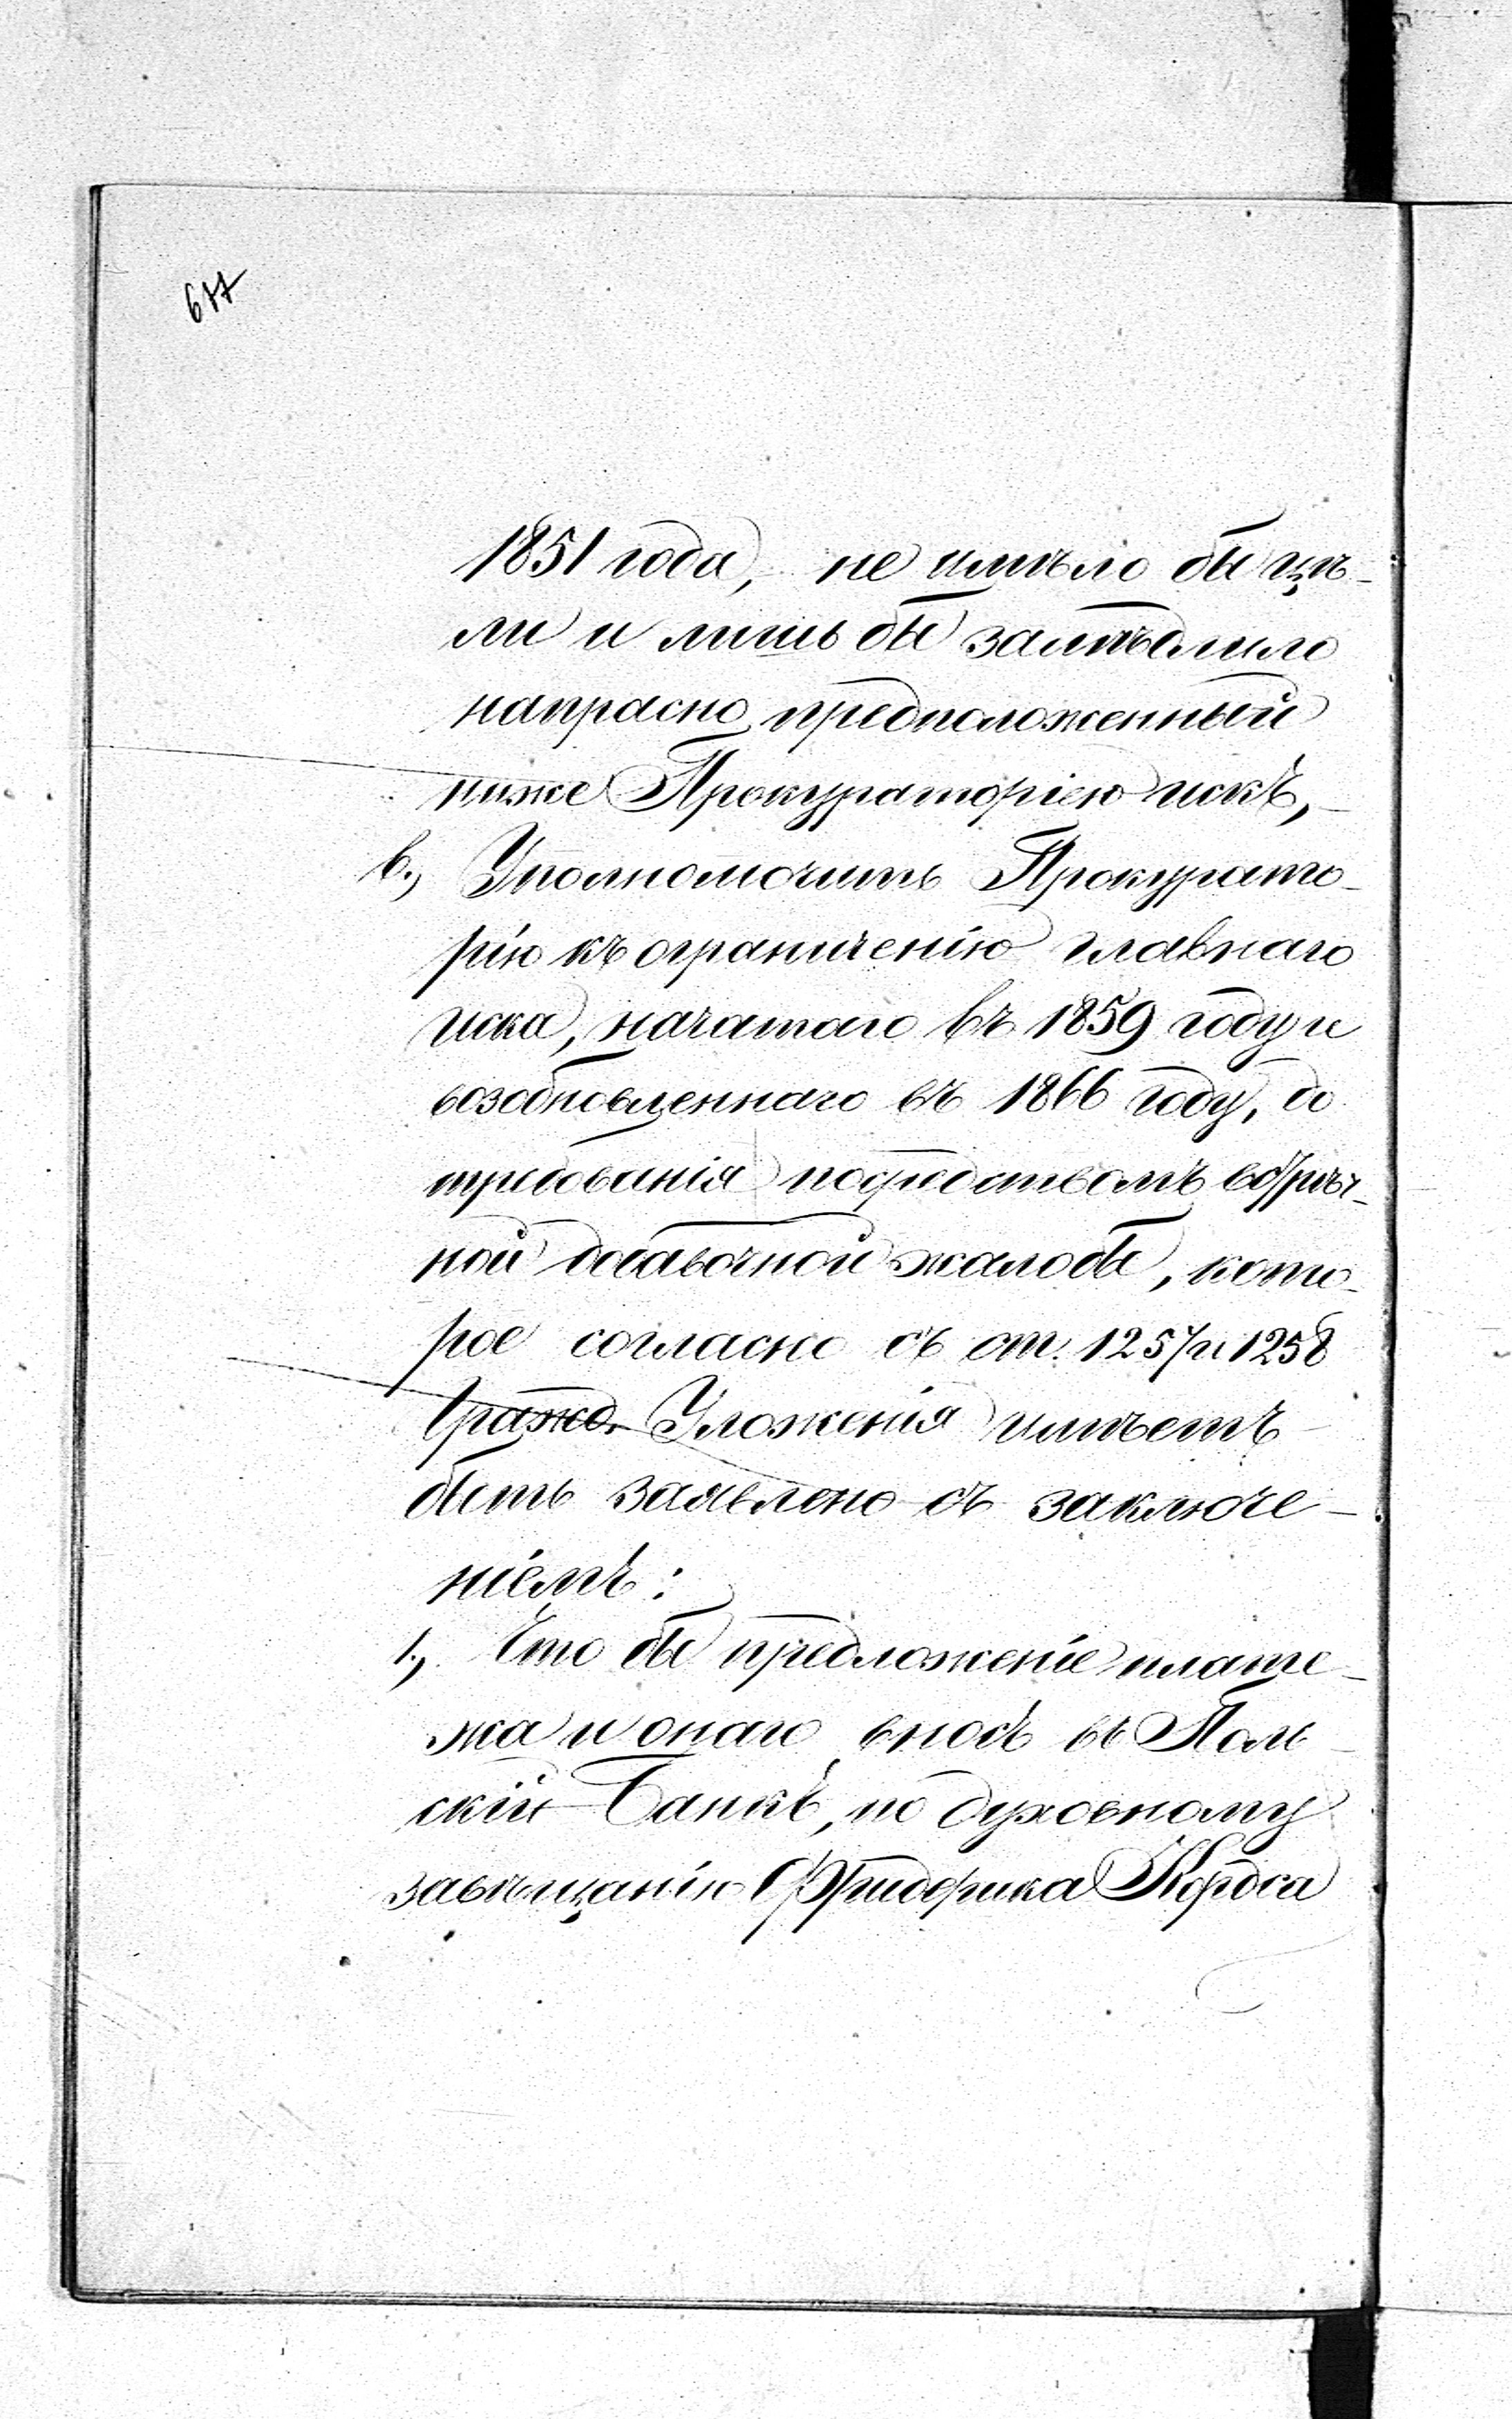 677
1851 года, не имѣло бы цѣ-
ли и лишь бы замѣдлило
напрасно предположенный
ниже Прокураторіею искъ,-
в., Уполномочить Прокурато-
рію къ ограниченію главнаго
иска, начатаго въ 1859 году и
возобновленнаго въ 1866 году, до
требованія посредствомъ вс
ной добавочной жалобы, кото-
рое согласно съ ст. 1257 и 1258
Гражд. Уложенія имѣетъ
быть заявлено съ заключе-
ніемъ:
1., Что бы предложеніе плате-
жа и онаго вносъ въ Поль-
скій Банкъ, по духовному
завѣщанію Фридерика Кордса